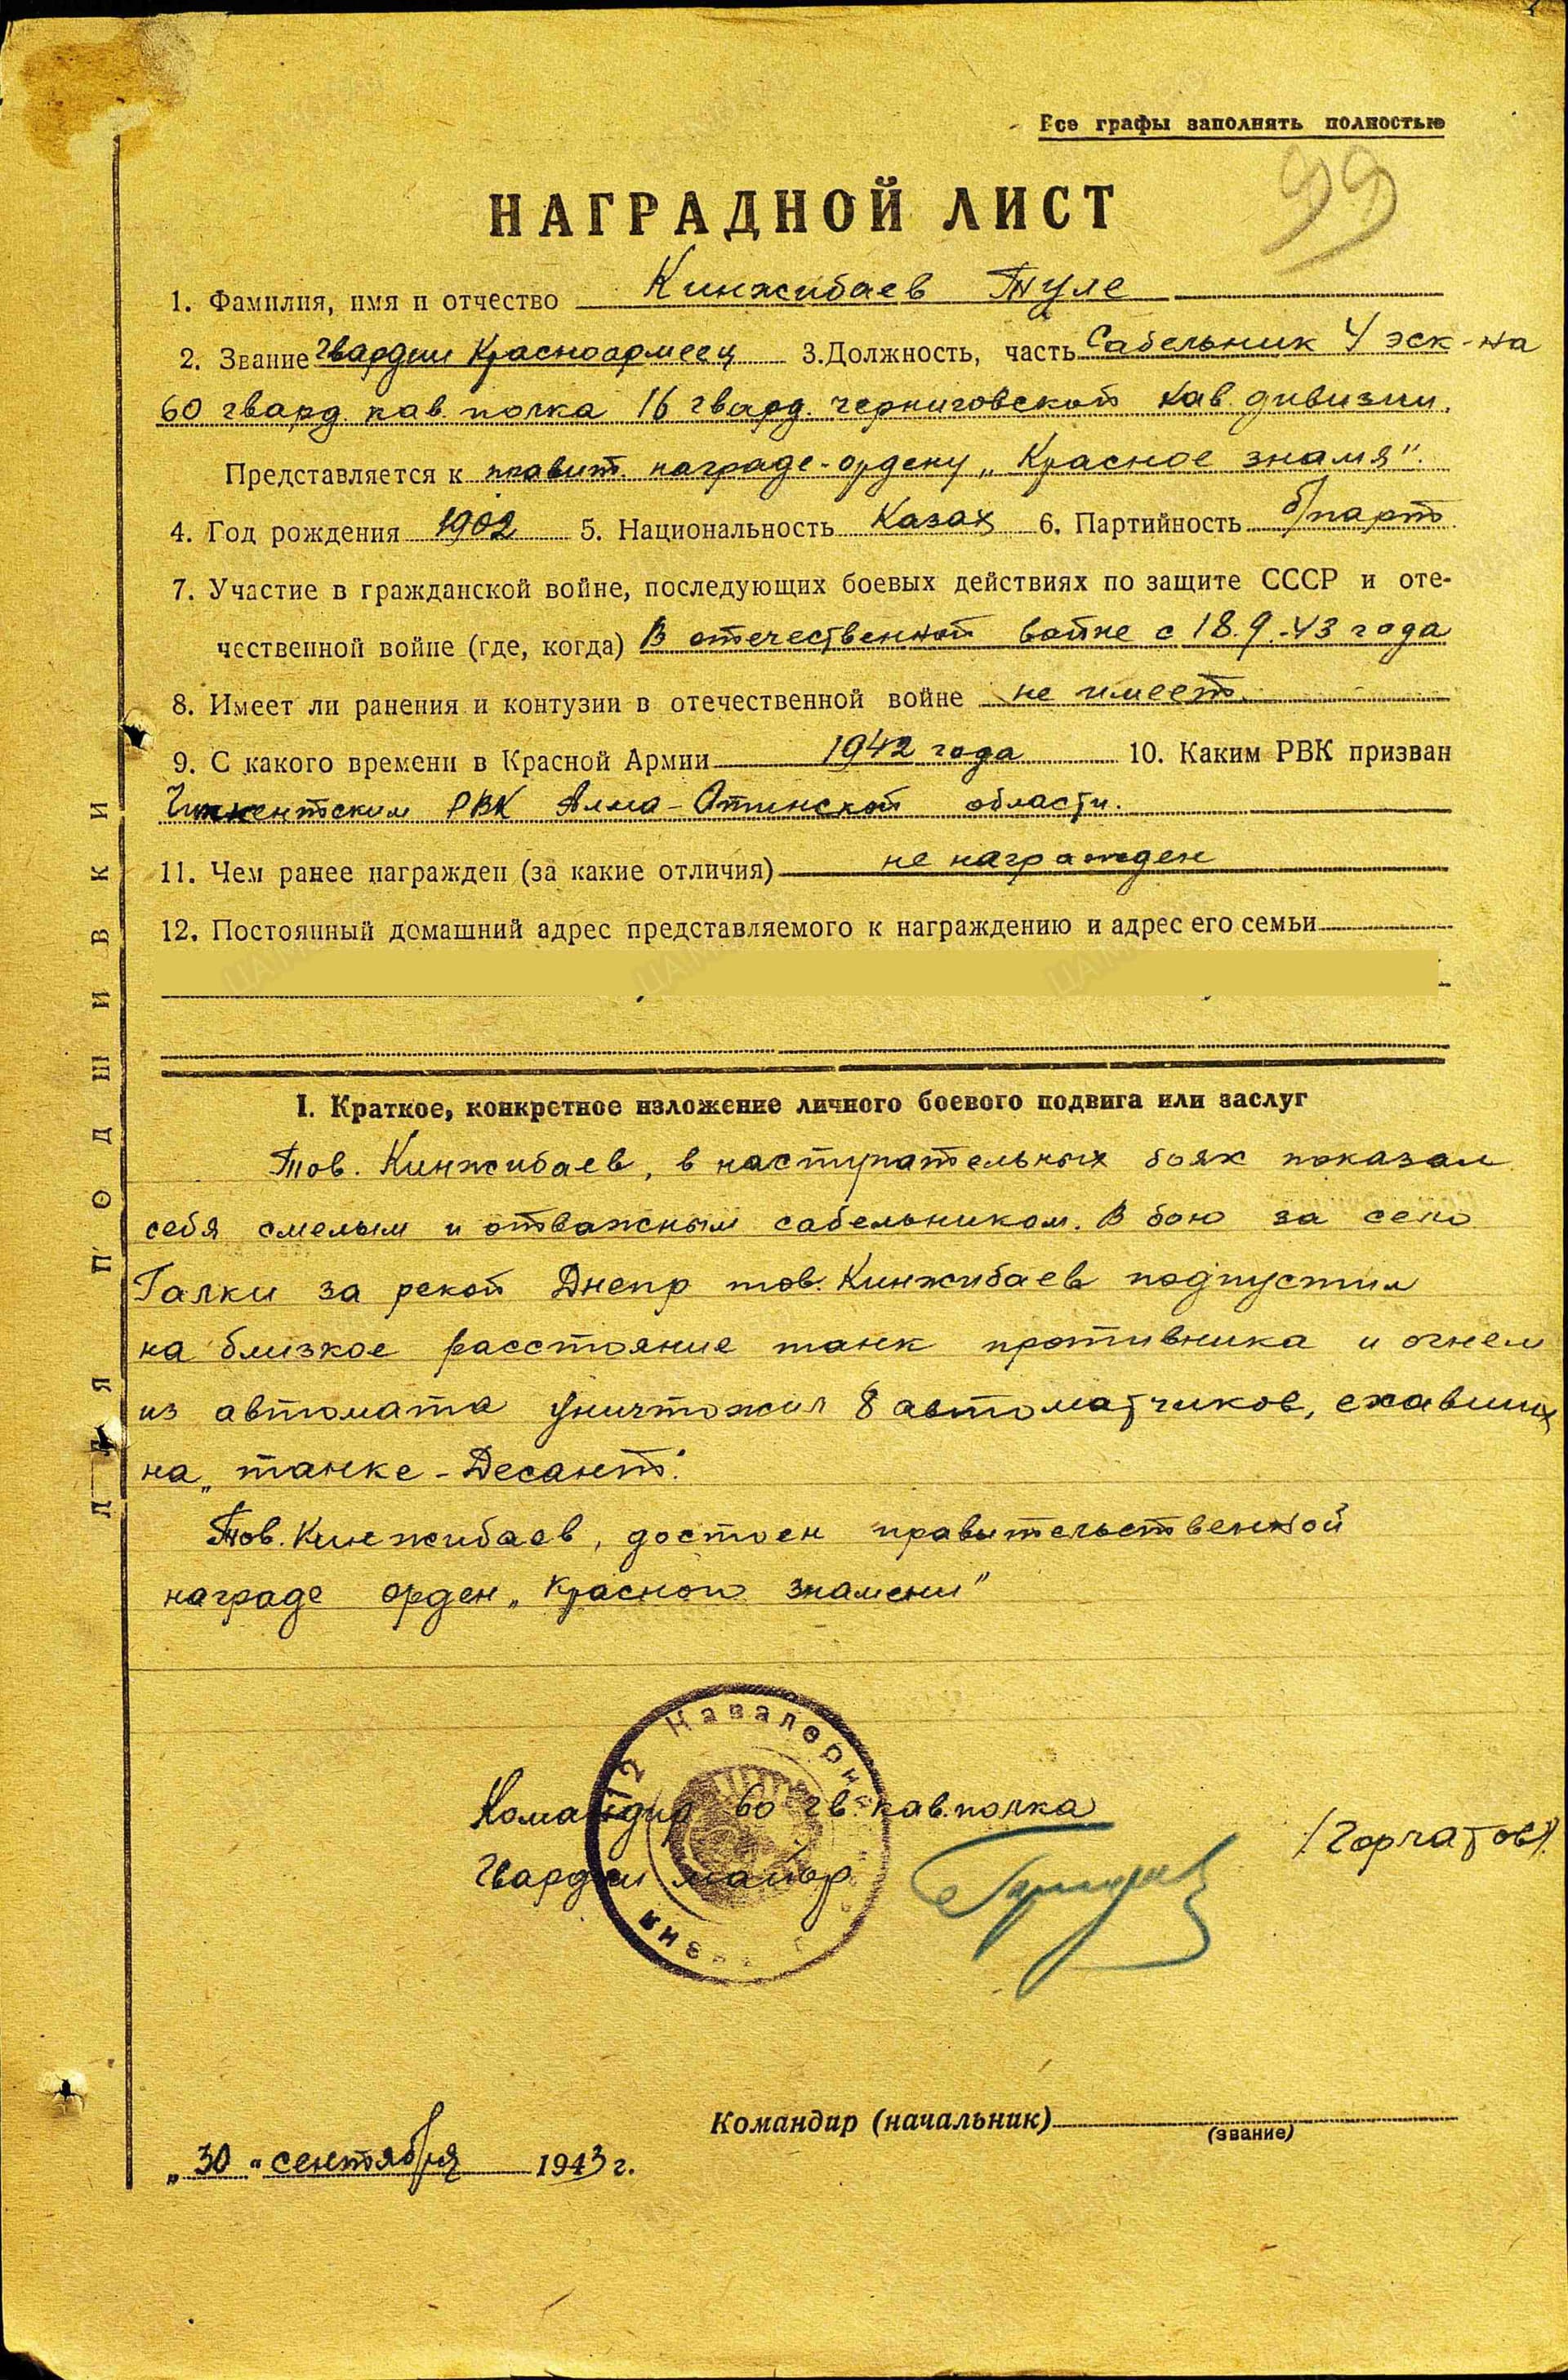 Все графы заполнять полностью
99
НАГРАДНОЙ ЛИСТ
1. Фамилия, имя и отчество Кинжибаев Туле
2. Звание Гвардии Красноармеец 3. Должность, часть Сабельник 4 эск-на
60 гвард. кав. полка 16 гвард. черниговской кав. дивизии.
Представляется к правит. награде - ордену „Красное знамя".
4. Год рождения 1902 5. Национальность Казах 6. Партийность б/парт.
7. Участие в гражданской войне, последующих боевых действиях по защите СССР и оте-
чественной войне (где, когда) В отечественной войне с 18.9.-43 года
8. Имеет ли ранения и контузии в отечественной войне не имеет.
9. С какого времени в Красной Армии 1942 года 10. Каким РВК призван
РВК Алма-Атинской области.
11. Чем ранее награжден (за какие отличия) не награжден
12. Постоянный домашний адрес представляемого к награждению и адрес его семьи
ДЛЯ ПОДШИВКИ
I. Краткое, конкретное изложение личного боевого подвига или заслуг
Тов. Кинжибаев, в наступательных боях показал
себя смелым и отважным сабельником. В бою за село
Галки за рекой Днепр тов. Кинжибаев подпустил
на близкое расстояние танк противника и огнем
из автомата уничтожил 8 автоматчиков, ехавших
на „танке - Десант".
Тов. Кинжибаев, достоен правительственной
награде орден „Красного знамени"
112 Кавалерий
Командир 60 гв. кав. полка
Гвардии майор (Горчатов)
Командир (начальник)
(звание)
„30" сентября 1943 г.